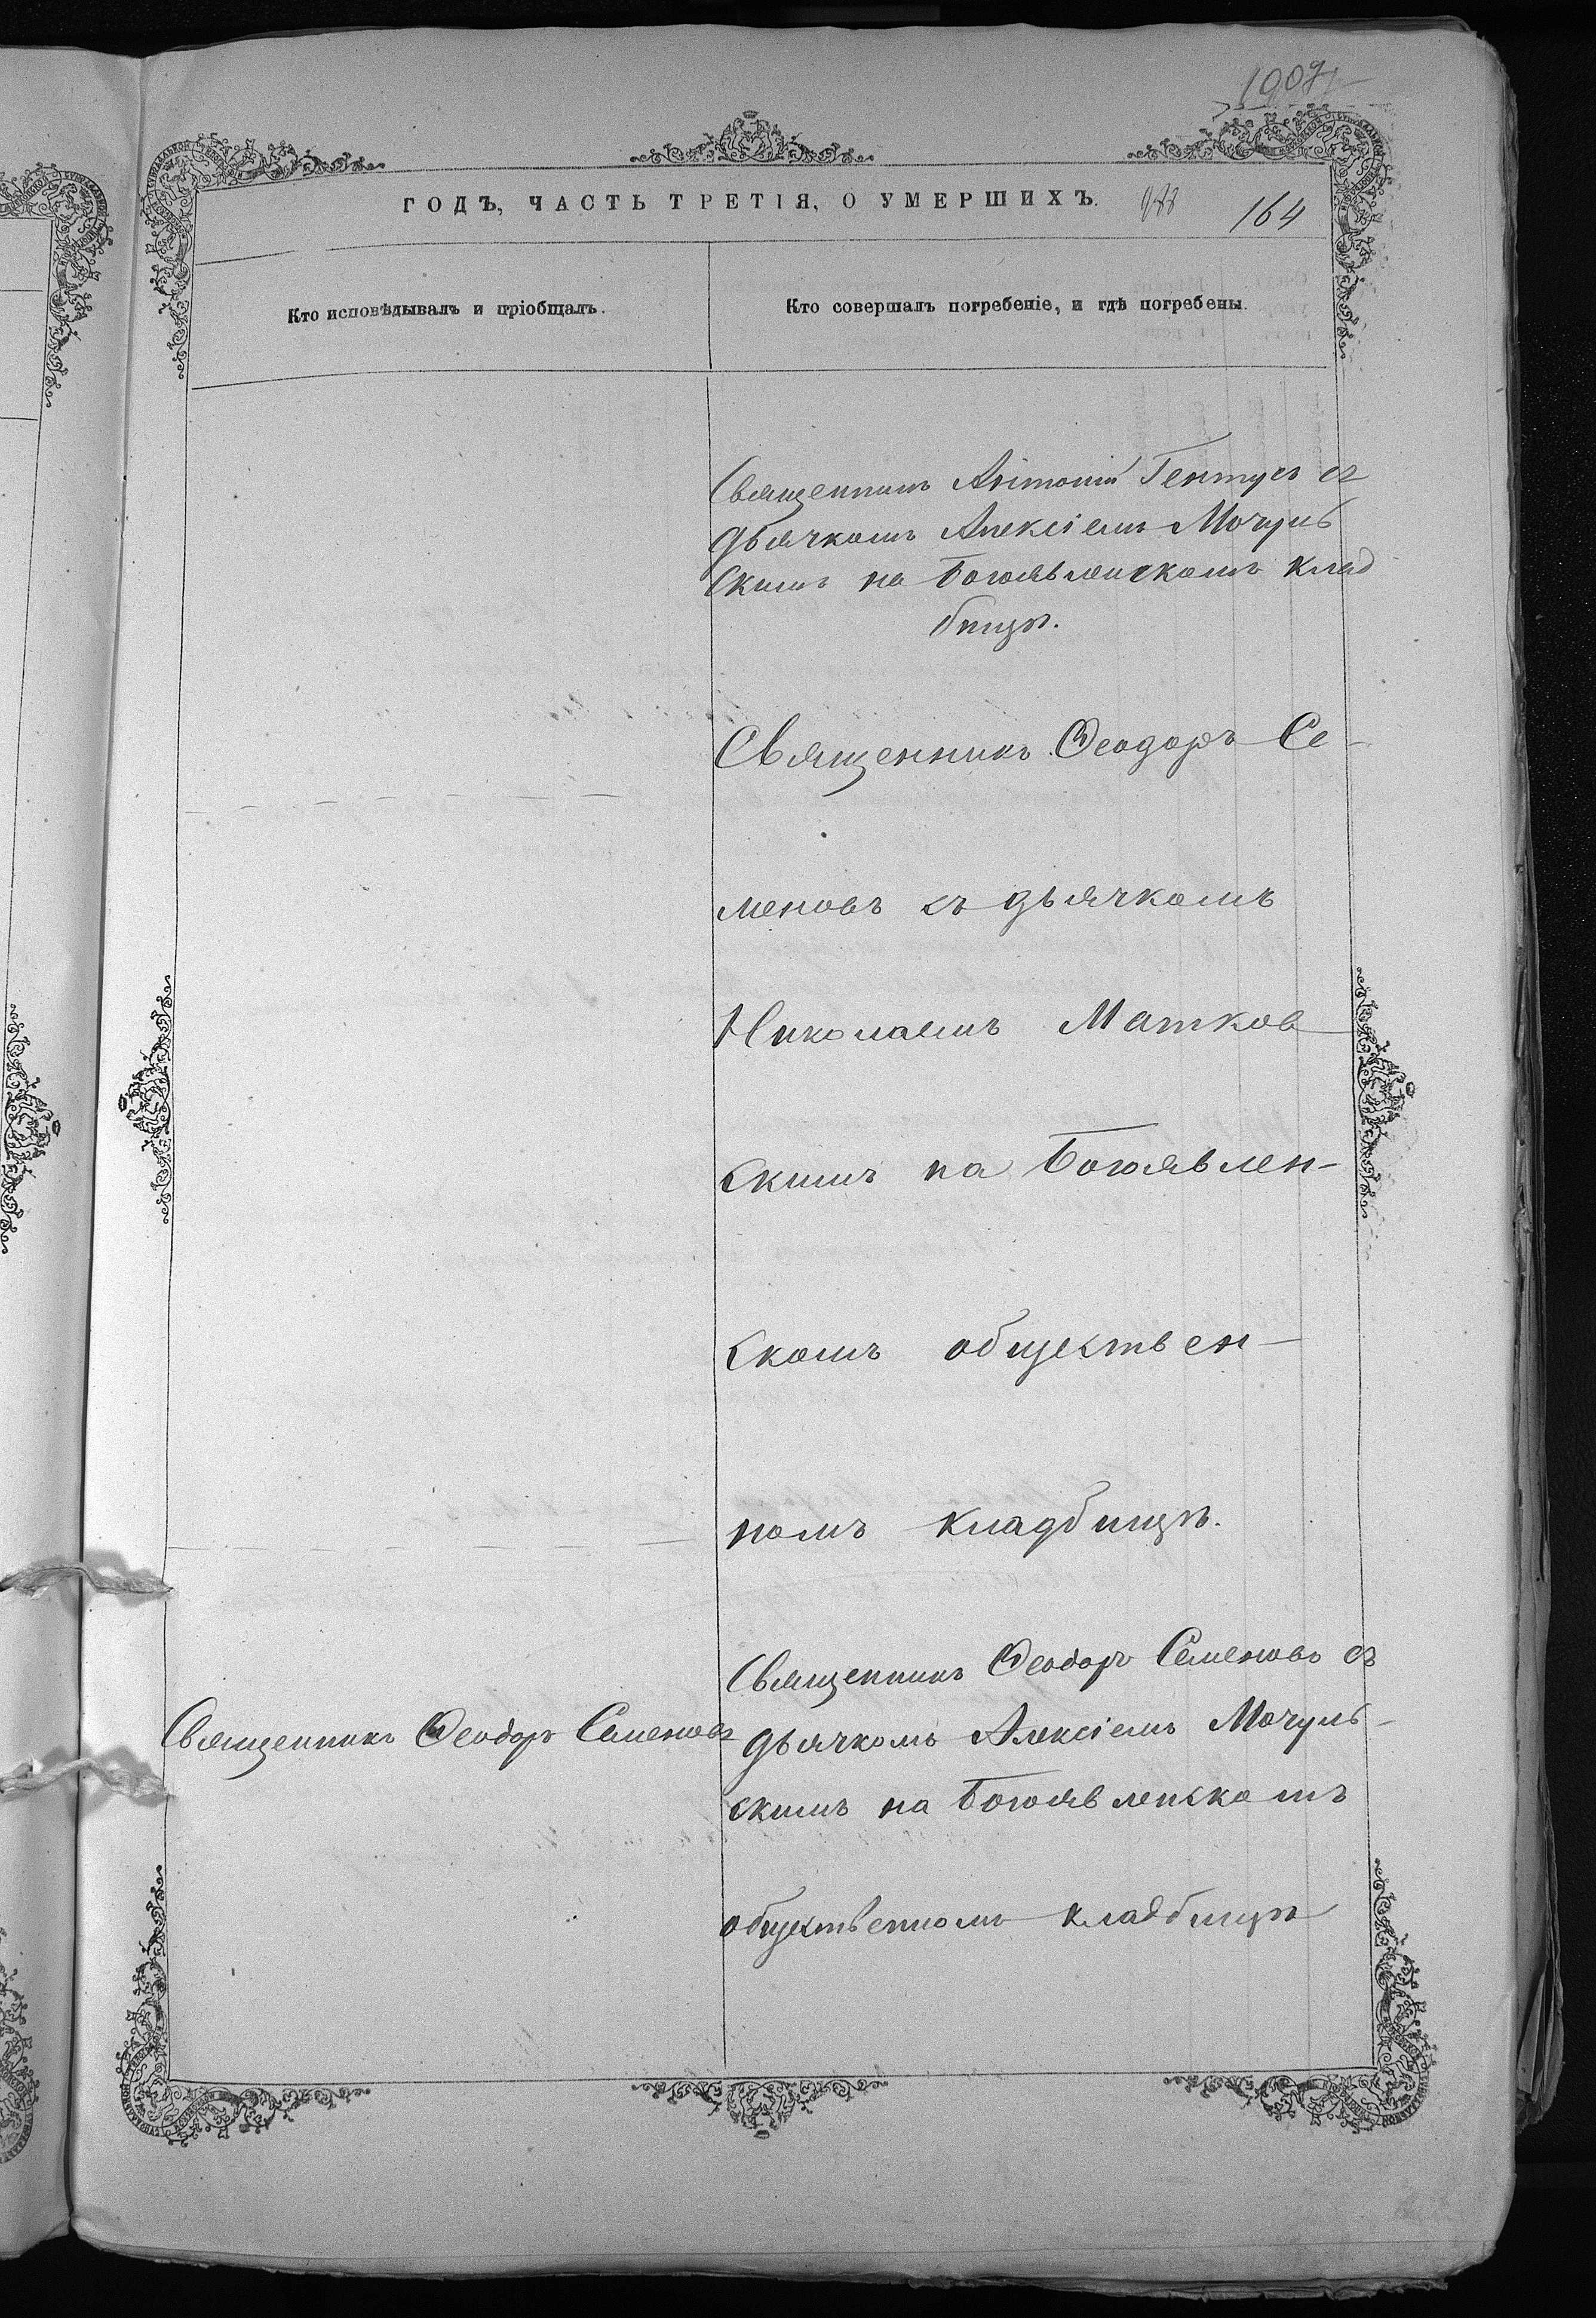 ГОДЪ, ЧАСТЬ ТРЕТІЯ, О УМЕРШИХЪ.
164
Кто исповѣдывалъ и пріобщалъ.
Кто совершалъ погребеніе, и гдѣ погребены.
Священникъ Антоній Гентусъ съ
дьячкомъ Алексіемъ Мочуль
скимъ на Богоявленскомъ клад
бищѣ.
Священникъ Ѳеодоръ Се-
меновъ съ дьячкомъ
Николаемъ Матков
скимъ на Богоявлен-
скомъ обществен-
номъ кладбищѣ.
Священникъ Ѳеодоръ Семеновъ
Священникъ Ѳеодоръ Семеновъ съ
дьячкомъ Алексіемъ Мочуль-
скимъ на Богоявленскомъ
общественномъ кладбищѣ